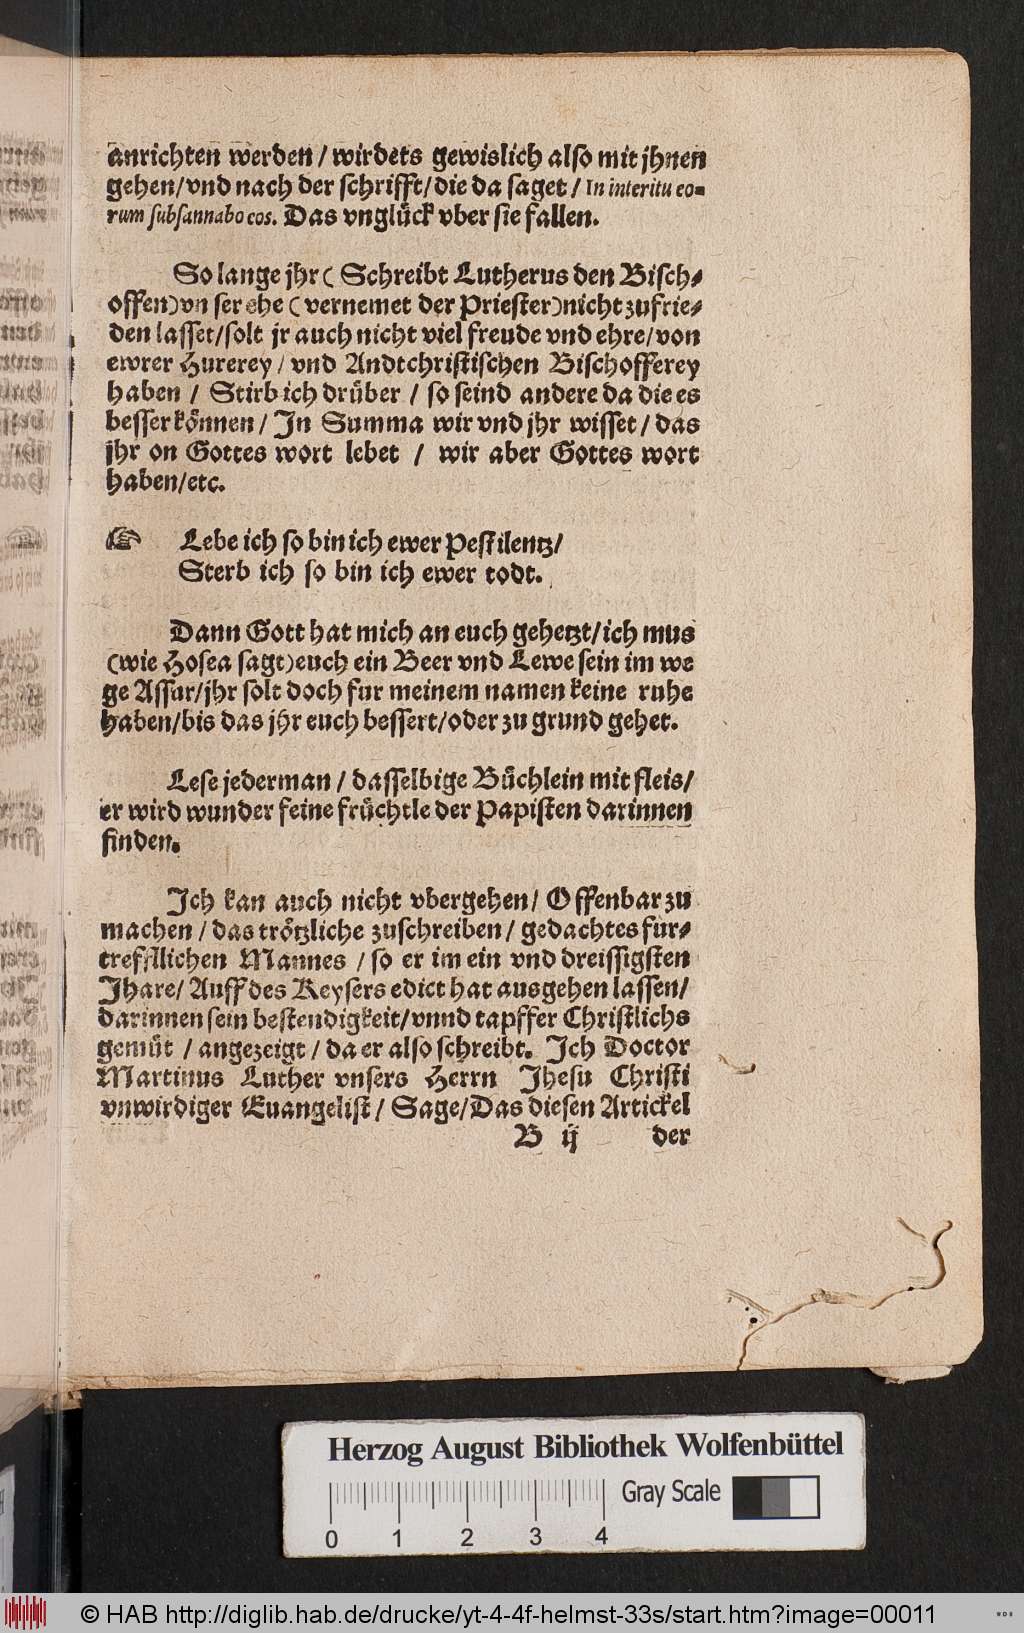 anrichten werden / wirdets gewislich also mit jhnen
gehen/vnd nach der schrifft/die da saget / In interitu eo-
rum subsannabo eos. Das vnglück vber sie fallen.
So lange jhr ( Schreibt Lutherus den Bisch-
offen)vn ser ehe ( vernemet der Priester)nicht zufrie-
den lasset/solt jr auch nicht viel freude vnd ehre/von
ewrer Hurerey / vnd Andtchristischen Bischofferey
haben / Stirb ich drüber / so seind andere da die es
besser können / In Summa wir vnd jhr wisset / das
jhr on Gottes wort lebet / wir aber Gottes wort
haben/etc.
☞ Lebe ich so bin ich ewer Pestilentz/
Sterb ich so bin ich ewer todt.
Dann Gott hat mich an euch gehetzt/ich mus
(wie Hosea sagt)euch ein Beer vnd Lewe sein im we
ge Assur/jhr solt doch fur meinem namen keine ruhe
haben/bis das jhr euch bessert/oder zu grund gehet.
Lese jederman / dasselbige Büchlein mit fleis/
er wird wunder feine früchtle der Papisten darinnen
finden.
Ich kan auch nicht vbergehen/ Offenbar zu
machen / das trötzliche zuschreiben / gedachtes fur-
trefflichen Mannes / so er im ein vnd dreissigsten
Jhare/ Auff des Keysers edict hat ausgehen lassen/
darinnen sein bestendigkeit/vnnd tapffer Christlichs
gemüt / angezeigt / da er also schreibt. Ich Doctor
Martinus Luther vnsers Herrn Jhesu Christi
vnwirdiger Euangelist / Sage/Das diesen Artickel
B ij der
Herzog August Bibliothek Wolfenbüttel
Gray Scale
0 1 2 3 4
© HAB http://diglib.hab.de/drucke/yt-4-4f-helmst-33s/start.htm?image=00011